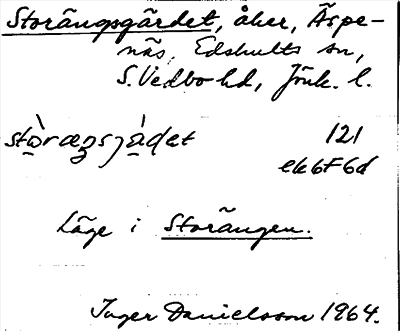 Storängsgärdet, åker, Äspe-
näs, Edshults sn,
S. Vedbo hd, Jönk. l.
121
ek6f6d
Läge i Storängen.
Inger Danielsson 1964.